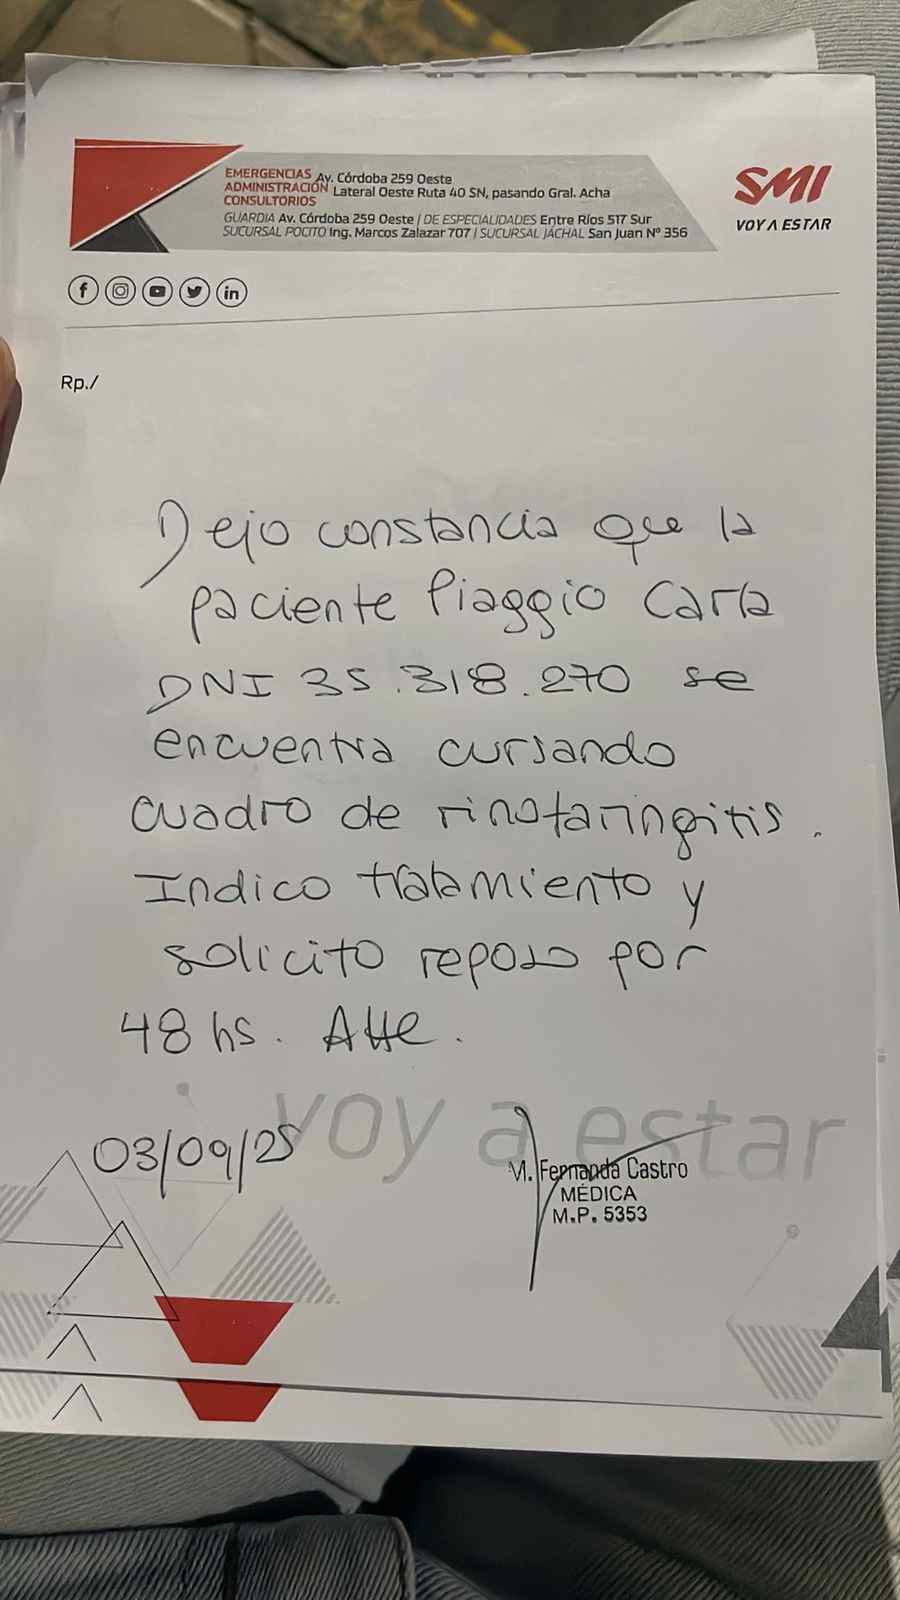 EMERGENCIAS Av. Córdoba 259 Oeste
ADMINISTRACIÓN Lateral Oeste Ruta 40 SN, pasando Gral. Acha
CONSULTORIOS
GUARDIA Av. Córdoba 259 Oeste / DE ESPECIALIDADES Entre Ríos 517 Sur
SUCURSAL POCITO Ing. Marcos Zalazar 707 / SUCURSAL JÁCHAL San Juan Nº 356
SMI
VOY A ESTAR
Rp./
Dejo constancia que la
paciente Piaggio Carla
DNI 35.318.270 se
encuentra cursando
cuadro de rinofaringitis.
Indico tratamiento y
solicito reposo por
48 hs. Atte.
voy a estar
03/09/25
M. Fernanda Castro
MÉDICA
M.P. 5353